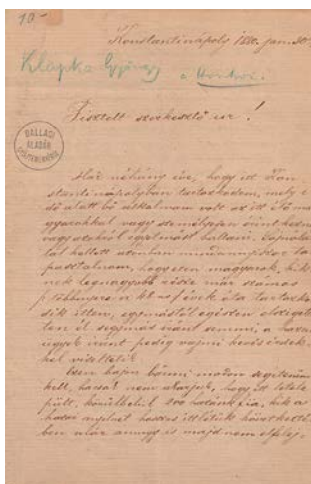 10-
Konstantinápoly 1880. jan. 30.
Klapka György a Honhoz.
Tisztelt szerkesztő ur!
BALLAGI
ALADÁR
Már néhány éve, hogy itt Kon
stantinápolyban tartózkodom, mely i
dő alatt bő alkalmam volt az itt élő ma
gyarokkal vagy személyesen érintkezni
vagy azokról egyetmást hallani. Sajnála
tal kellett azonban mindannyiszor ta
pasztalnom, hogy ezen magyarok, kik
nek legnagyobb része már számos
többnyire évek óta tartózko
dik itten, egymástól egészen elszige
ten él egymás iránt semmi, a hazai
ügyek iránt pedig vajmi kevés érdek
kel viseltetik.
Ezen bajon bármi módon segítenünk
kell, hacsak nem akarjuk, hogy itt letele
pült, körülbelül 400 hazánk fia, kik a
hazai nyelvet hosszas ittlétük következté
ben már annyira is majd nem elfelej-